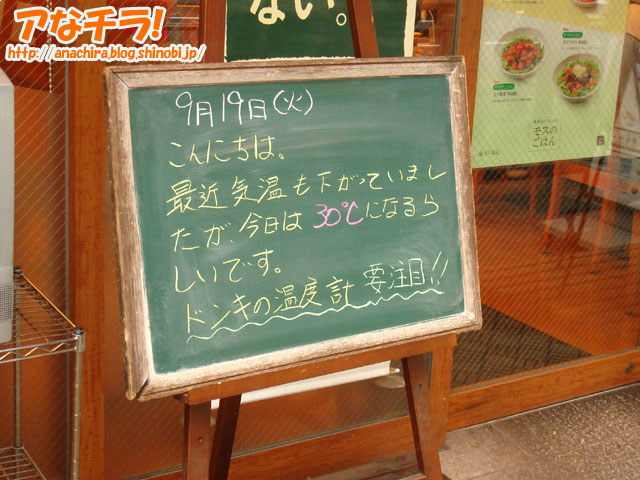 アなチラ!
http://anachira.blog.shinobi.jp/
ない。
9月19日(火)
こんにちは。
最近気温も下がっていまし
たが、今日は30℃になるら
しいです。
ドンキの温度計 要注目!!
モスの
ごはん